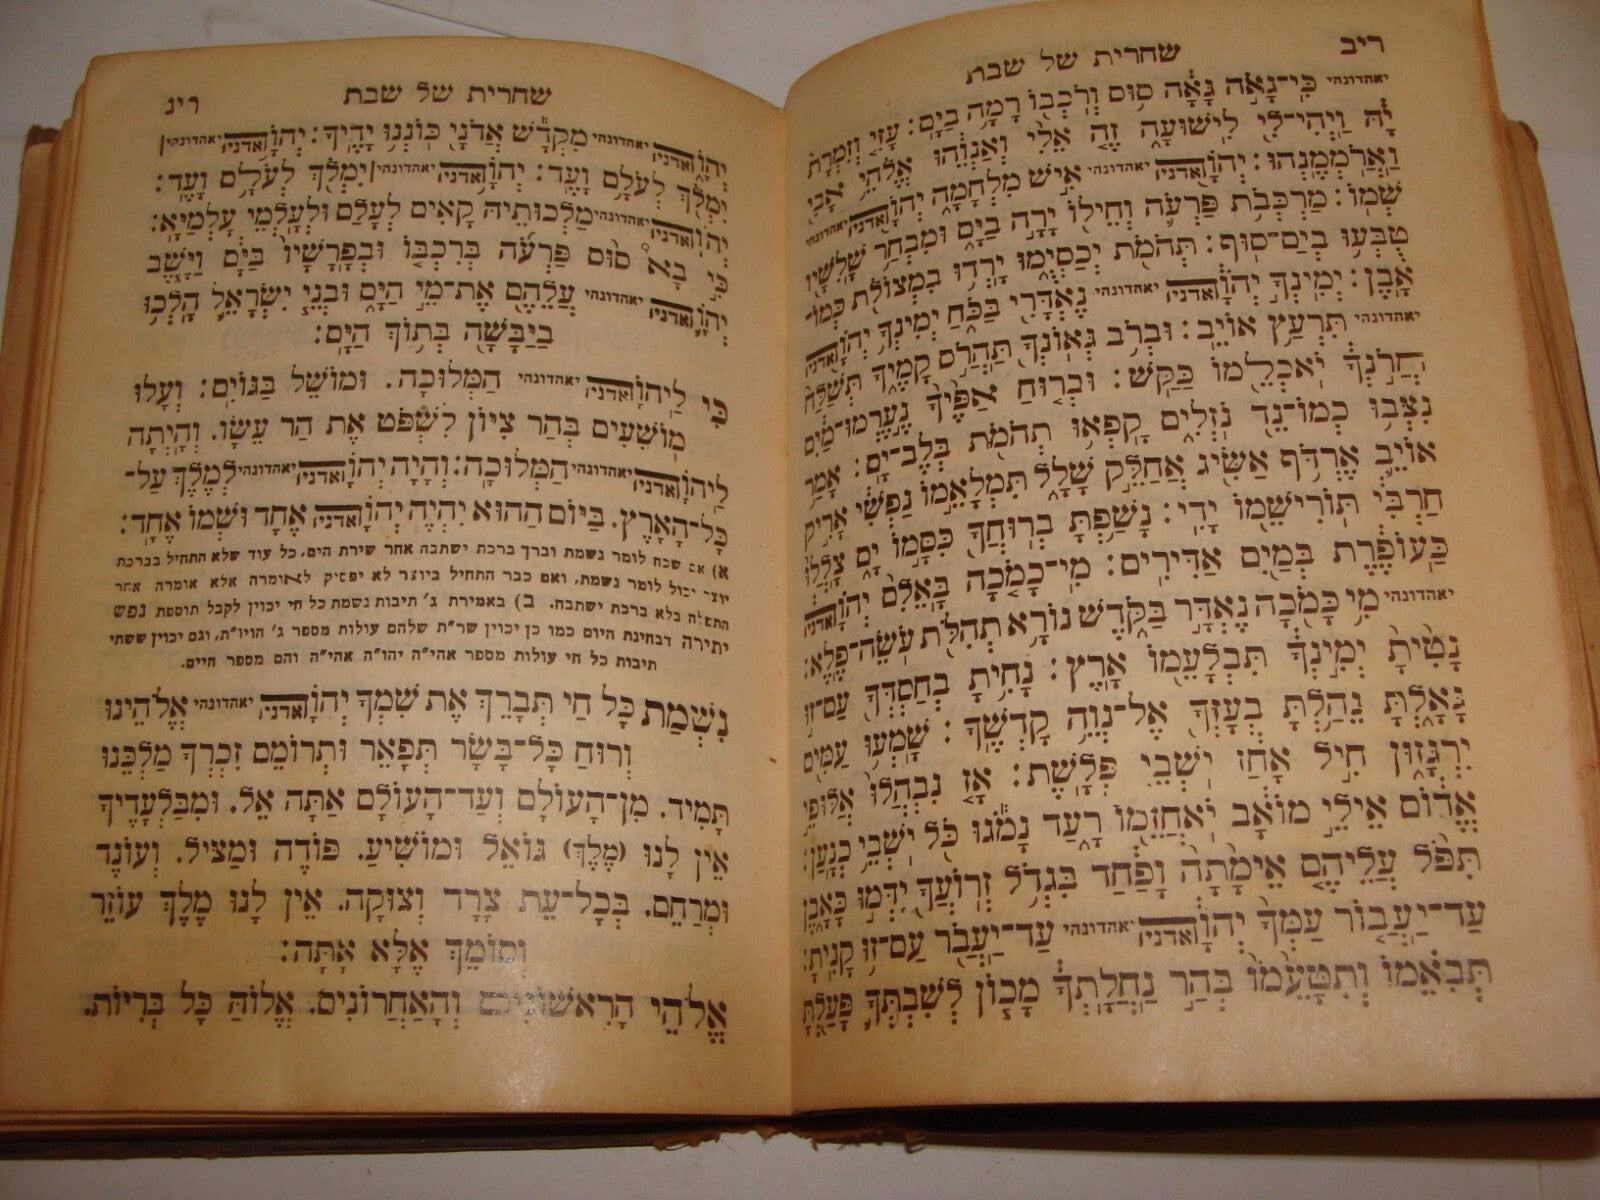 ריב שחרית של שבת
יאהדונהי כִּֽי־גָאֹה גָּאָה סוּס וְרֹכְבוֹ רָמָה בַיָּם: עָזִּי וְזִמְרָת
יָהּ וַֽיְהִי־לִי לִֽישׁוּעָה זֶה אֵלִי וְאַנְוֵהוּ אֱלֹהֵי אָבִי
וַאֲרֹֽמְמֶֽנְהוּ: יְהוָֹה אדני יאהדונהי אִישׁ מִלְחָמָה יְהוָֹה אדני יאהדונהי
שְׁמוֹ: מַרְכְּבֹת פַּרְעֹה וְחֵילוֹ יָרָה בַיָּם וּמִבְחַר שָׁלִשָׁיו
טֻבְּעוּ בְיַם־סוּף: תְּהֹמֹת יְכַסְיֻמוּ יָרְדוּ בִמְצוֹלֹת כְּמוֹ־
אָבֶן: יְמִֽינְךָ יְהוָֹה אדני יאהדונהי נֶאְדָּרִי בַּכֹּחַ יְמִֽינְךָ יְהוָֹה אדני
יאהדונהי תִּרְעַץ אוֹיֵב: וּבְרֹב גְּאֽוֹנְךָ תַּהֲרֹס קָמֶיךָ תְּשַׁלַּח
חֲרֹֽנְךָ יֹאכְלֵמוֹ כַּקַּשׁ: וּבְרוּחַ אַפֶּיךָ נֶעֶרְמוּ־מַיִם
נִצְּבוּ כְמוֹ־נֵד נֹזְלִים קָפְאוּ תְהֹמֹת בְּלֶב־יָם: אָמַר
אוֹיֵב אֶרְדֹּף אַשִּׂיג אֲחַלֵּק שָׁלָל תִּמְלָאֵמוֹ נַפְשִׁי אָרִיק
חַרְבִּי תּוֹרִישֵׁמוֹ יָדִי: נָשַׁפְתָּ בְרוּחֲךָ כִּסָּמוֹ יָם צָלְלוּ
כַּעוֹפֶרֶת בְּמַיִם אַדִּירִים: מִֽי־כָמֹכָה בָּאֵלִם יְהוָֹה אדני
יאהדונהי מִי כָּמֹכָה נֶאְדָּר בַּקֹּדֶשׁ נוֹרָא תְהִלֹּת עֹשֵׂה־פֶלֶא:
נָטִיתָ יְמִינְךָ תִּבְלָעֵמוֹ אָרֶץ: נָחִיתָ בְחַסְדְּךָ עַם־זוּ
גָּאָלְתָּ נֵהַלְתָּ בְעָזְּךָ אֶל־נְוֵה קָדְשֶׁךָ: שָׁמְעוּ עַמִּים
יִרְגָּזוּן חִיל אָחַז יֹשְׁבֵי פְּלָשֶׁת: אָז נִבְהֲלוּ אַלּוּפֵי
אֱדוֹם אֵילֵי מוֹאָב יֹאחֲזֵמוֹ רָעַד נָמֹגוּ כֹּל יֹשְׁבֵי כְנָעַן:
תִּפֹּל עֲלֵיהֶם אֵימָתָה וָפַחַד בִּגְדֹל זְרוֹעֲךָ יִדְּמוּ כָּאָבֶן
עַד־יַעֲבוֹר עַמְּךָ יְהוָֹה אדני יאהדונהי עַד־יַעֲבֹר עַם־זוּ קָנִיתָ:
תְּבִאֵמוֹ וְתִטָּעֵמוֹ בְּהַר נַחֲלָתְךָ מָכוֹן לְשִׁבְתְּךָ פָּעַלְתָּ
שחרית של שבת ריג
יְהוָֹה אדני יאהדונהי מִקְּדָשׁ אֲדֹנָי כּוֹנְנוּ יָדֶיךָ: יְהוָֹה אדני יאהדונהי
יִמְלֹךְ לְעֹלָם וָעֶד: יְהוָֹה אדני יאהדונהי יִמְלֹךְ לְעֹלָם וָעֶד:
יְהוָֹה אדני יאהדונהי מַלְכוּתֵיהּ קָאִים לְעָלַם וּלְעָלְמֵי עָלְמַיָּא:
כִּי בָא סוּס פַּרְעֹה בְּרִכְבּוֹ וּבְפָרָשָׁיו בַּיָּם וַיָּשֶׁב
יְהוָֹה אדני יאהדונהי עֲלֵהֶם אֶת־מֵי הַיָּם וּבְנֵי יִשְׂרָאֵל הָלְכוּ
בַיַּבָּשָׁה בְּתוֹךְ הַיָּם:
כִּי לַיהוָֹה אדני יאהדונהי הַמְּלוּכָה. וּמוֹשֵׁל בַּגּוֹיִם: וְעָלוּ
מוֹשִׁעִים בְּהַר צִיּוֹן לִשְׁפֹּט אֶת הַר עֵשָׂו. וְהָיְתָה
לַיהוָֹה אדני יאהדונהי הַמְּלוּכָה: וְהָיָה יְהוָֹה אדני יאהדונהי לְמֶלֶךְ עַל־
כָּל־הָאָרֶץ. בַּיּוֹם הַהוּא יִהְיֶה יְהוָֹה אדני אֶחָד וּשְׁמוֹ אֶחָד:
א) אם שכח לומר נשמת וברך ברכת ישתבח אחר שירת הים, כל עוד שלא התחיל בברכת
יוצר יכול לומר נשמת, ואם כבר התחיל ביוצר לא יפסיק לאומרה אלא אומרה אחר
התפלה בלא ברכת ישתבח. ב) באמירת ג׳ תיבות נשמת כל חי יכוין לקבל תוספת נפש
יתירה דבחינת היום כמו כן יכוין שר״ת שלהם עולות מספר ג׳ הויו״ת, וגם יכוין ששתי
תיבות כל חי עולות מספר אהי״ה יהו״ה אהי״ה והם מספר חיים.
נִשְׁמַת כָּל חַי תְּבָרֵךְ אֶת שִׁמְךָ יְהוָֹה אדני יאהדונהי אֱלֹהֵינוּ
וְרוּחַ כָּל־בָּשָׂר תְּפָאֵר וּתְרוֹמֵם זִכְרְךָ מַלְכֵּנוּ
תָּמִיד. מִן־הָעוֹלָם וְעַד־הָעוֹלָם אַתָּה אֵל. וּמִבַּלְעָדֶיךָ
אֵין לָנוּ (מֶלֶךְ) גּוֹאֵל וּמוֹשִׁיעַ. פּוֹדֶה וּמַצִּיל. וְעוֹנֶה
וּמְרַחֵם. בְּכָל־עֵת צָרָה וְצוּקָה. אֵין לָנוּ מֶלֶךְ עוֹזֵר
וְסוֹמֵךְ אֶלָּא אָתָּה:
אֱלֹהֵי הָרִאשׁוֹנִים וְהָאַחֲרוֹנִים. אֱלוֹהַּ כָּל בְּרִיּוֹת.